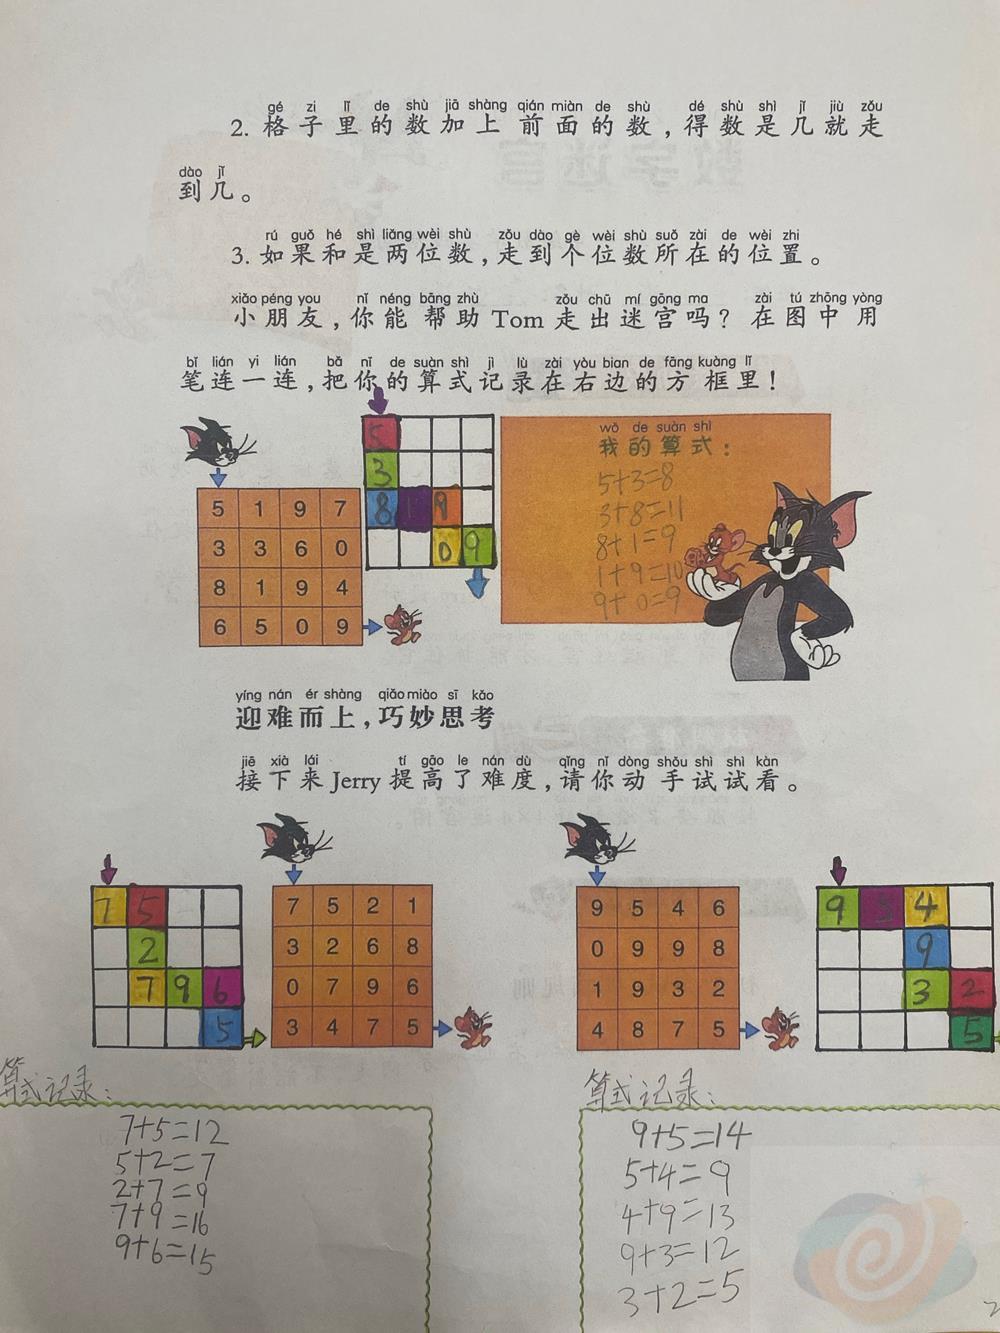 gé zi lǐ de shù jiā shàng qián miàn de shù dé shù shì jǐ jiù zǒu
2. 格子里的数加上前面的数，得数是几就走
dào jǐ
到几。
rú guǒ hé shì liǎng wèi shù zǒu dào gè wèi shù suǒ zài de wèi zhi
3. 如果和是两位数，走到个位数所在的位置。
xiǎo péng you nǐ néng bāng zhù zǒu chū mí gōng ma zài tú zhōng yòng
小朋友，你能帮助Tom走出迷宫吗？在图中用
bǐ lián yi lián bǎ nǐ de suàn shì jì lù zài yòu bian de fāng kuàng lǐ
笔连一连，把你的算式记录在右边的方框里！
5
3
8 1 9
0 9
5 1 9 7
3 3 6 0
8 1 9 4
6 5 0 9
wǒ de suàn shì
我的算式：
5+3=8
3+8=11
8+1=9
1+9=10
9+0=9
yíng nán ér shàng qiǎo miào sī kǎo
迎难而上，巧妙思考
jiē xià lái tí gāo le nán dù qǐng nǐ dòng shǒu shì shì kàn
接下来Jerry提高了难度，请你动手试试看。
7 5
2
7 9 6
5
7 5 2 1
3 2 6 8
0 7 9 6
3 4 7 5
9 5 4 6
0 9 9 8
1 9 3 2
4 8 7 5
9 5 4
9
3 2
5
算式记录：
7+5=12
5+2=7
2+7=9
7+9=16
9+6=15
算式记录：
9+5=14
5+4=9
4+9=13
9+3=12
3+2=5